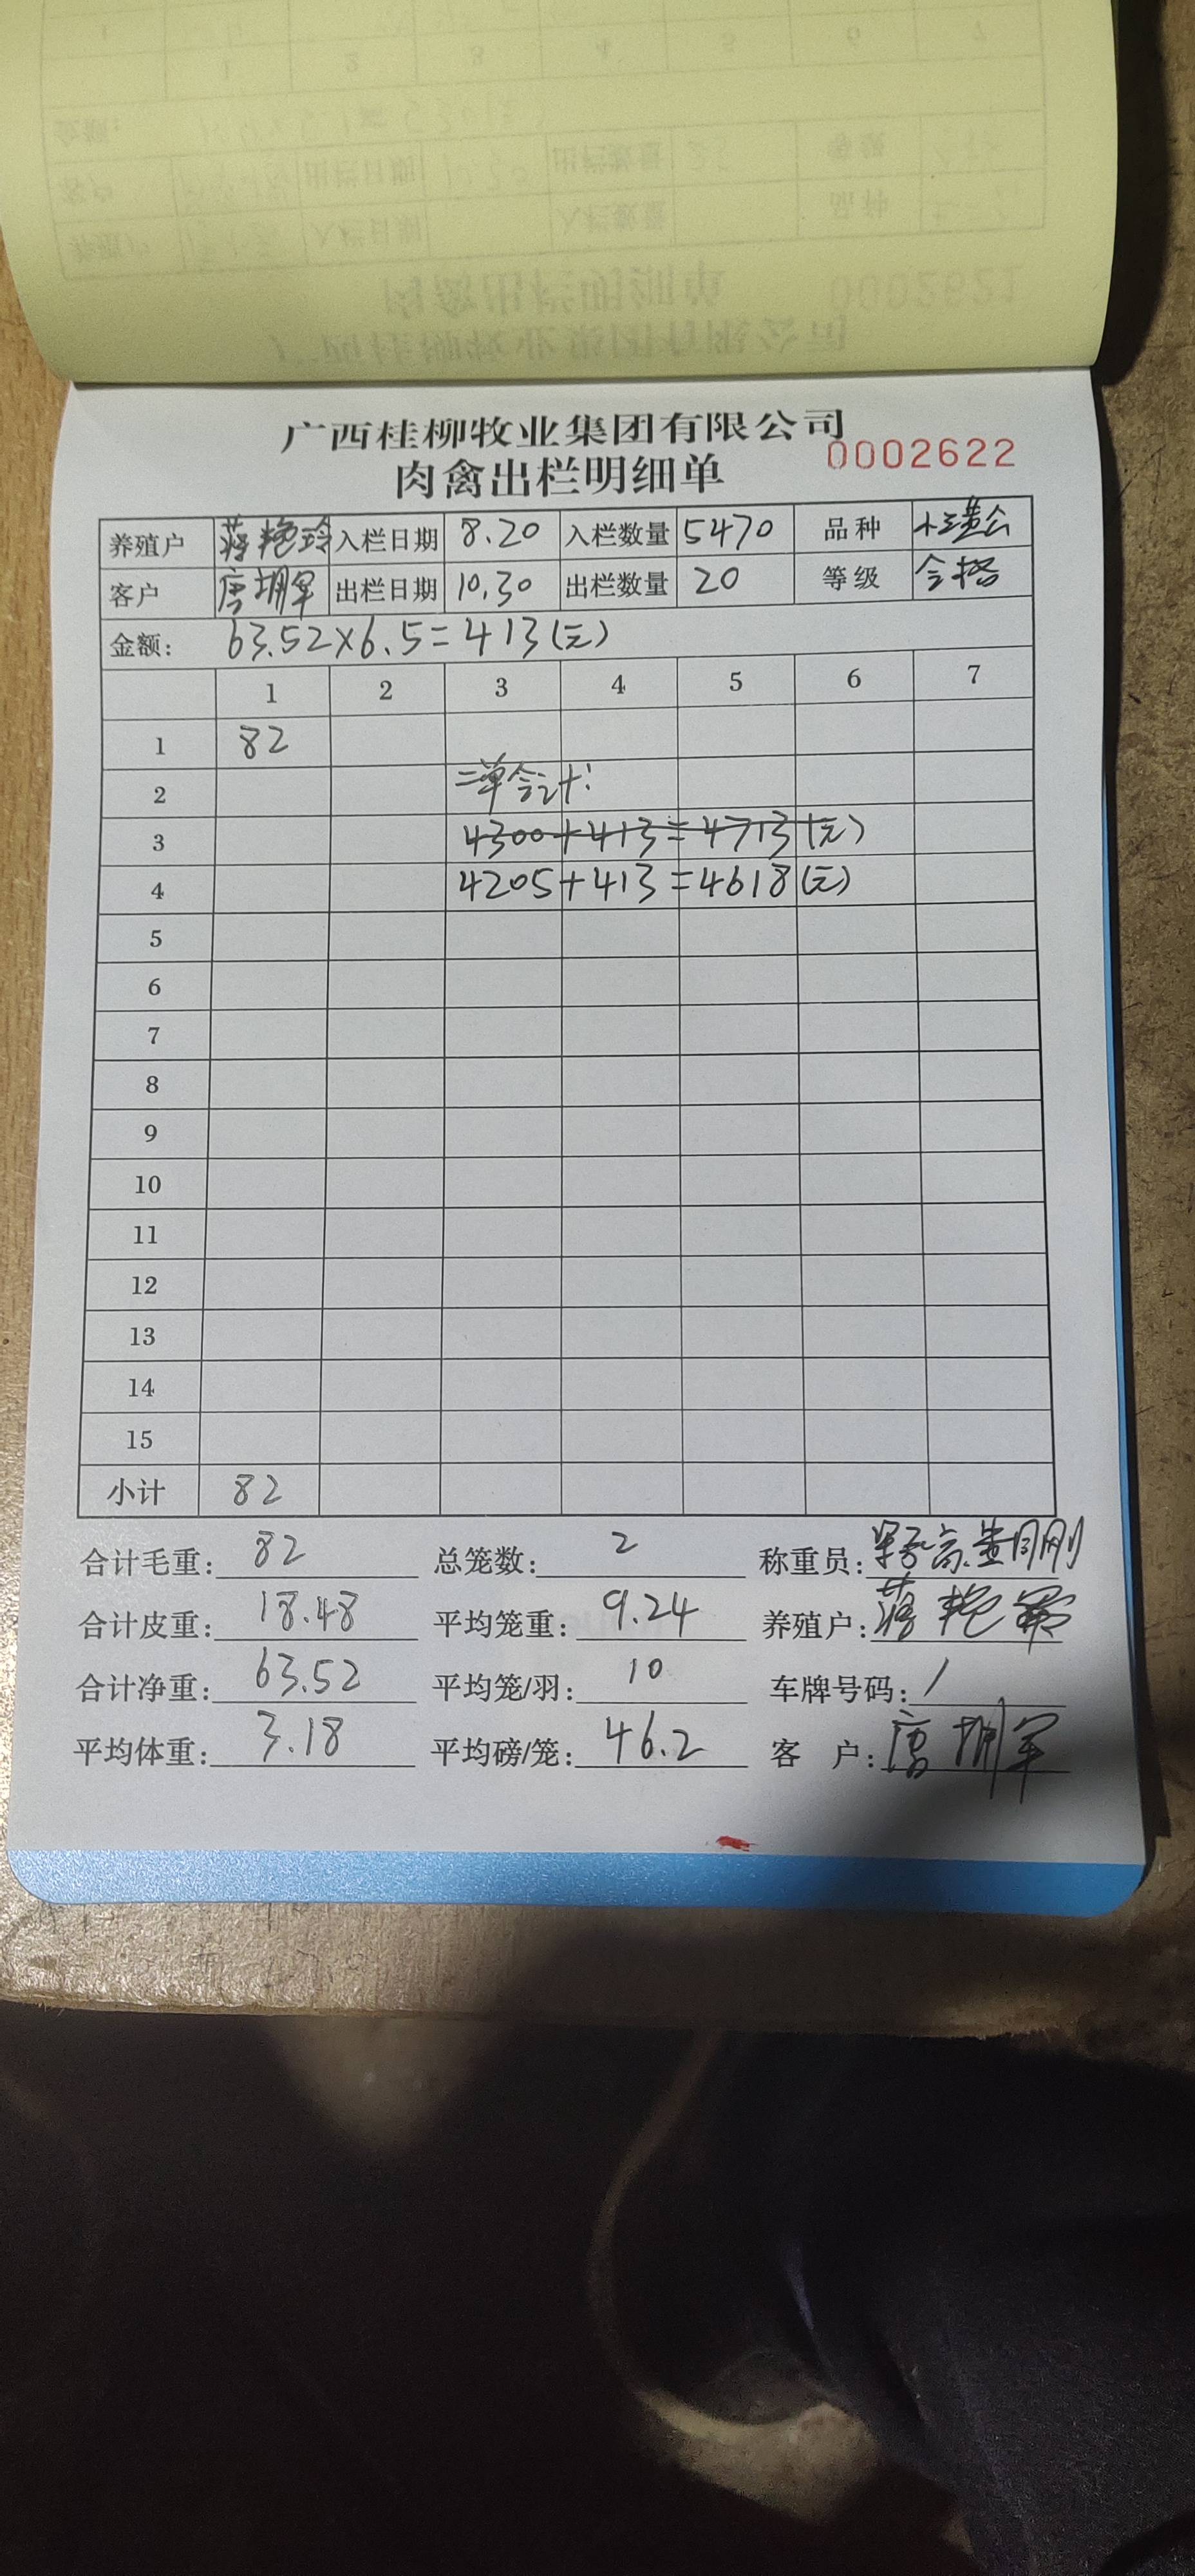 广西桂柳牧业集团有限公司
肉禽出栏明细单 0002622
养殖户 蒋艳玲 入栏日期 8.20 入栏数量 5470 品种
客户 唐拥军 出栏日期 10.30 出栏数量 20 等级 合格
金额: 63.52×6.5=413(元)
1 2 3 4 5 6 7
1 82
2 二单合计:
3 4300+413=4713(元)
4 4205+413=4618(元)
5
6
7
8
9
10
11
12
13
14
15
小计 82
合计毛重: 82 总笼数: 2 称重员:
合计皮重: 18.48 平均笼重: 9.24 养殖户: 蒋艳
合计净重: 63.52 平均笼/羽: 10 车牌号码: /
平均体重: 3.18 平均磅/笼: 46.2 客 户: 唐拥军